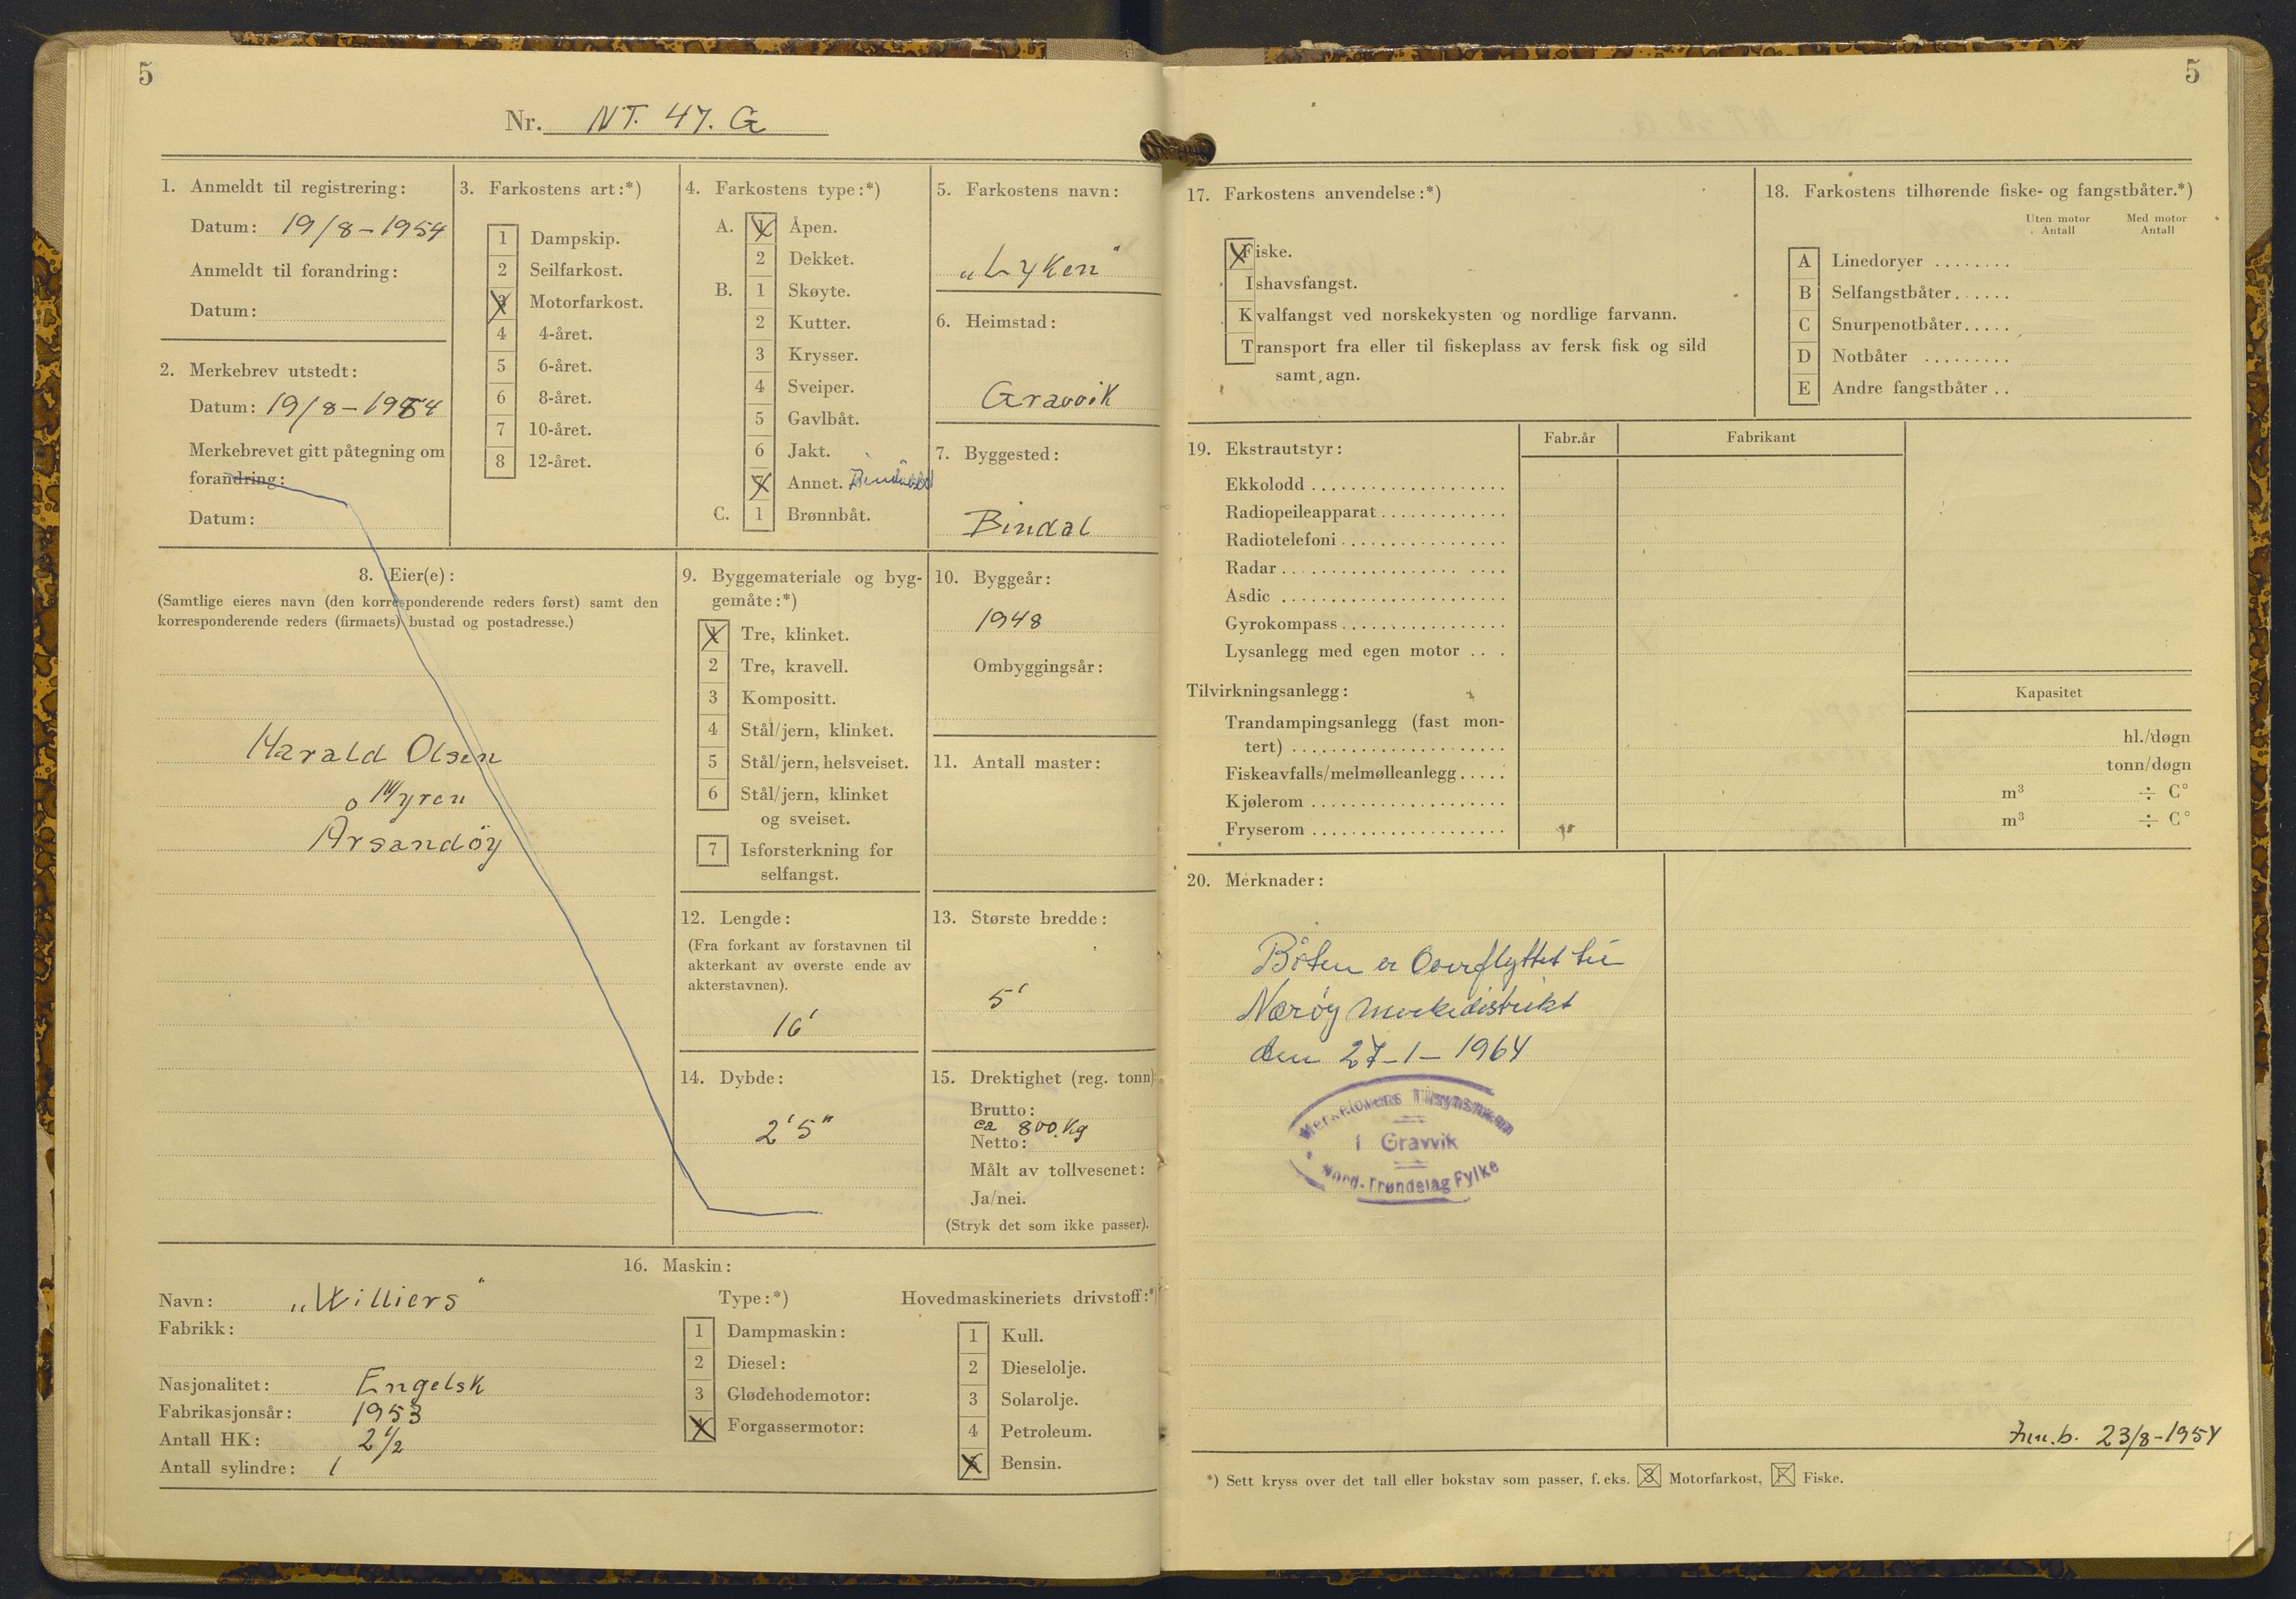 5
Nr. NT. 47. G
1. Anmeldt til registrering:
Datum: 19/8-1954
Anmeldt til forandring:
Datum:
2. Merkebrev utstedt:
Datum: 19/8-1954
Merkebrevet gitt påtegning om
forandring:
Datum:
3. Farkostens art:*)
1 Dampskip.
2 Seilfarkost.
3 Motorfarkost.
4 4-året.
5 6-året.
6 8-året.
7 10-året.
8 12-året.
4. Farkostens type:*)
A. 1 Åpen.
2 Dekket.
B. 1 Skøyte.
2 Kutter.
3 Krysser.
4 Sveiper.
5 Gavlbåt.
6 Jakt.
7 Annet.
C. 1 Brønnbåt.
5. Farkostens navn:
„Lyken"
6. Heimstad:
Gravvik
7. Byggested:
Bindal
8. Eier(e):
(Samtlige eieres navn (den korresponderende reders først) samt den
korresponderende reders (firmaets) bustad og postadresse.)
Harald Olsen
Myren
Årsandöy
9. Byggemateriale og byg-
gemåte:*)
1 Tre, klinket.
2 Tre, kravell.
3 Kompositt.
4 Stål/jern, klinket.
5 Stål/jern, helsveiset.
6 Stål/jern, klinket
og sveiset.
7 Isforsterkning for
selfangst.
10. Byggeår:
1948
Ombyggingsår:
11. Antall master:
12. Lengde:
(Fra forkant av forstavnen til
akterkant av øverste ende av
akterstavnen).
16'
13. Største bredde:
5'
14. Dybde:
2'5"
15. Drektighet (reg. tonn)
Brutto:
ca 800. Kg
Netto:
Målt av tollvesenet:
Ja/nei.
(Stryk det som ikke passer).
16. Maskin:
Navn: „Williers"
Fabrikk:
Nasjonalitet: Engelsk
Fabrikasjonsår: 1953
Antall HK: 2 1/2
Antall sylindre: 1
Type:*)
1 Dampmaskin:
2 Diesel:
3 Glødehodemotor:
4 Forgassermotor:
Hovedmaskineriets drivstoff:*)
1 Kull.
2 Dieselolje.
3 Solarolje.
4 Petroleum.
5 Bensin.
5
17. Farkostens anvendelse:*)
Fiske.
Ishavsfangst.
Kvalfangst ved norskekysten og nordlige farvann.
Transport fra eller til fiskeplass av fersk fisk og sild
samt agn.
18. Farkostens tilhørende fiske- og fangstbåter.*)
Uten motor Med motor
Antall Antall
A Linedoryer ........
B Selfangstbåter......
C Snurpenotbåter.....
D Notbåter .........
E Andre fangstbåter ..
19. Ekstrautstyr:
Fabr.år Fabrikant
Ekkolodd ....................
Radiopeileapparat.............
Radiotelefoni.................
Radar.................. ....
Asdic .......................
Gyrokompass.................
Lysanlegg med egen motor ...
Tilvirkningsanlegg:
Kapasitet
Trandampingsanlegg (fast mon-
tert) ...................... hl./døgn
Fiskeavfalls/melmølleanlegg..... tonn/døgn
Kjølerom .................... m³ ÷ C°
Fryserom .................... m³ ÷ C°
20. Merknader:
Båten er Overflyttet til
Nærøy merkedistrikt
den 27-1-1964
Merkelovens Tilsynsmann
i Gravvik
Nord-Trøndelag Fylke
23/8-1954
*) Sett kryss over det tall eller bokstav som passer, f. eks. 3 Motorfarkost, F Fiske.